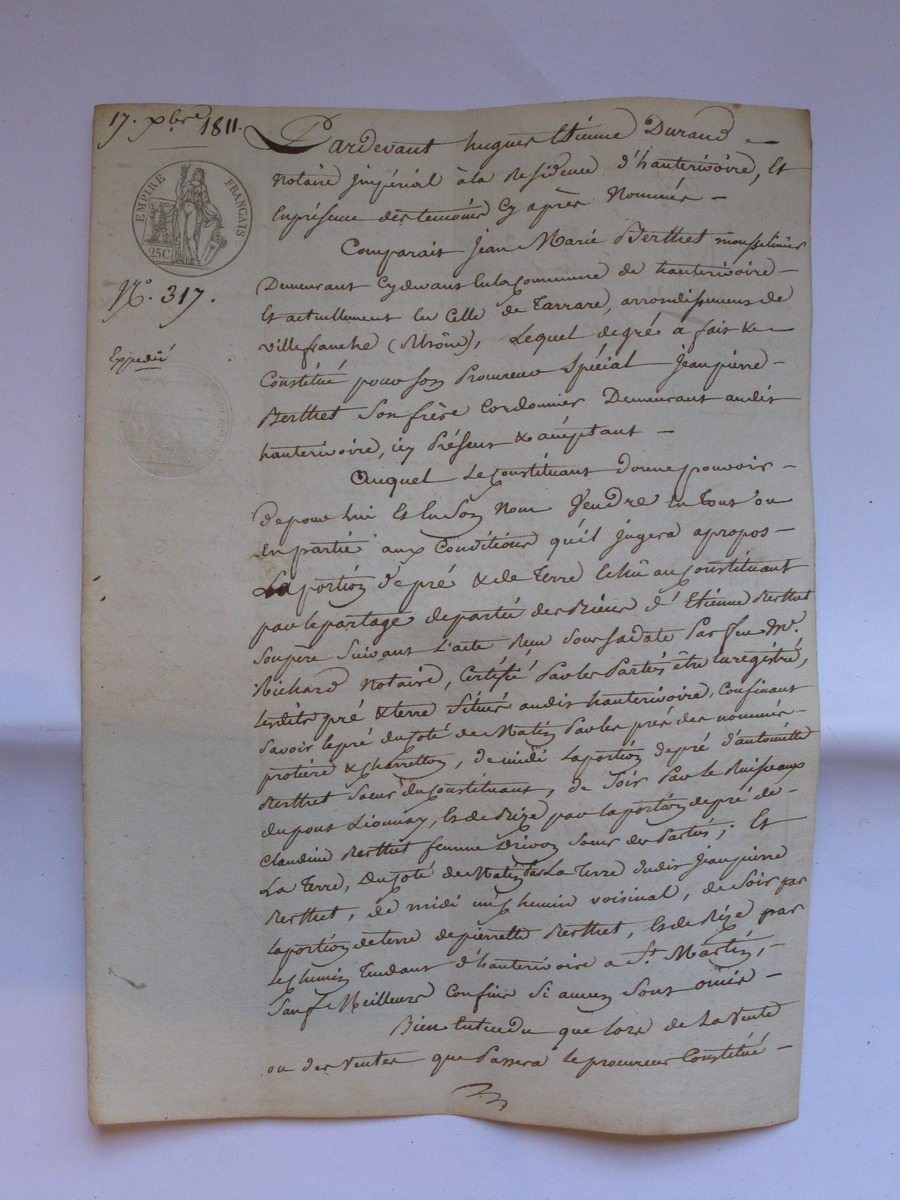 17. xbre 1811.
EMPIRE FRANÇAIS
25C
No. 317.
Expédié
Pardevant hugues Etienne Durand
Notaire jmpérial à la Résidence d'hauterivoire, Et
En présence des temoins Cy après Nommés
Comparait Jean Marie Berthet mousselinier
Demeurant Cydevant en la Commune de hauterivoire
Et actuellement en Celle de Tarrare, arrondissement de
Villefranche (Rhône), Lequel de gré a fait &
Constitué pour Son Procureur Spécial Jeanpierre
Berthet Son frère Cordonnier Demeurant audit
hauterivoire, icy Présent & aceptant
Auquel Le Constituant donne pouvoir
de pour lui Et En Son Nom Vendre En Tout ou
En partie aux Conditions qu'il jugera apropos
La portion de pré & de Terre Echû au Constituant
par le partage de partie des Biens d'Etienne Berthet
Son père Suivant L'acte Reçu Sous Sa date Par feu Me.
Richard Notaire, Certifié Par les Parties être Enregistré,
lesdits pré & terre Situés audit hauterivoire, Confinant
Savoir le pré du Coté de Matin Par les prés des nommés
protiere & Charretton, de midi la portion de pré d'antoinette
Berthet Sœur du Constituant, de Soir Par le Ruisseaux
du pont Lionnay, Et de Bize par la portion de pré de
Claudine Berthet femme Drivon Sœur des Parties; Et
La Terre, Du Coté de Matin Par La Terre dudit Jeanpierre
Berthet, de midi un Chemin voisinal, de Soir par
la portion de terre de pierrette Berthet, Et de Bize par
le Chemin Tendant d'hauterivoire a St. Martin,
Sauf Meilleurs Confins Si aucun Sont omis
Bien Entendu que lors de La Vente
ou des Ventes que Passera le procureur Constitué